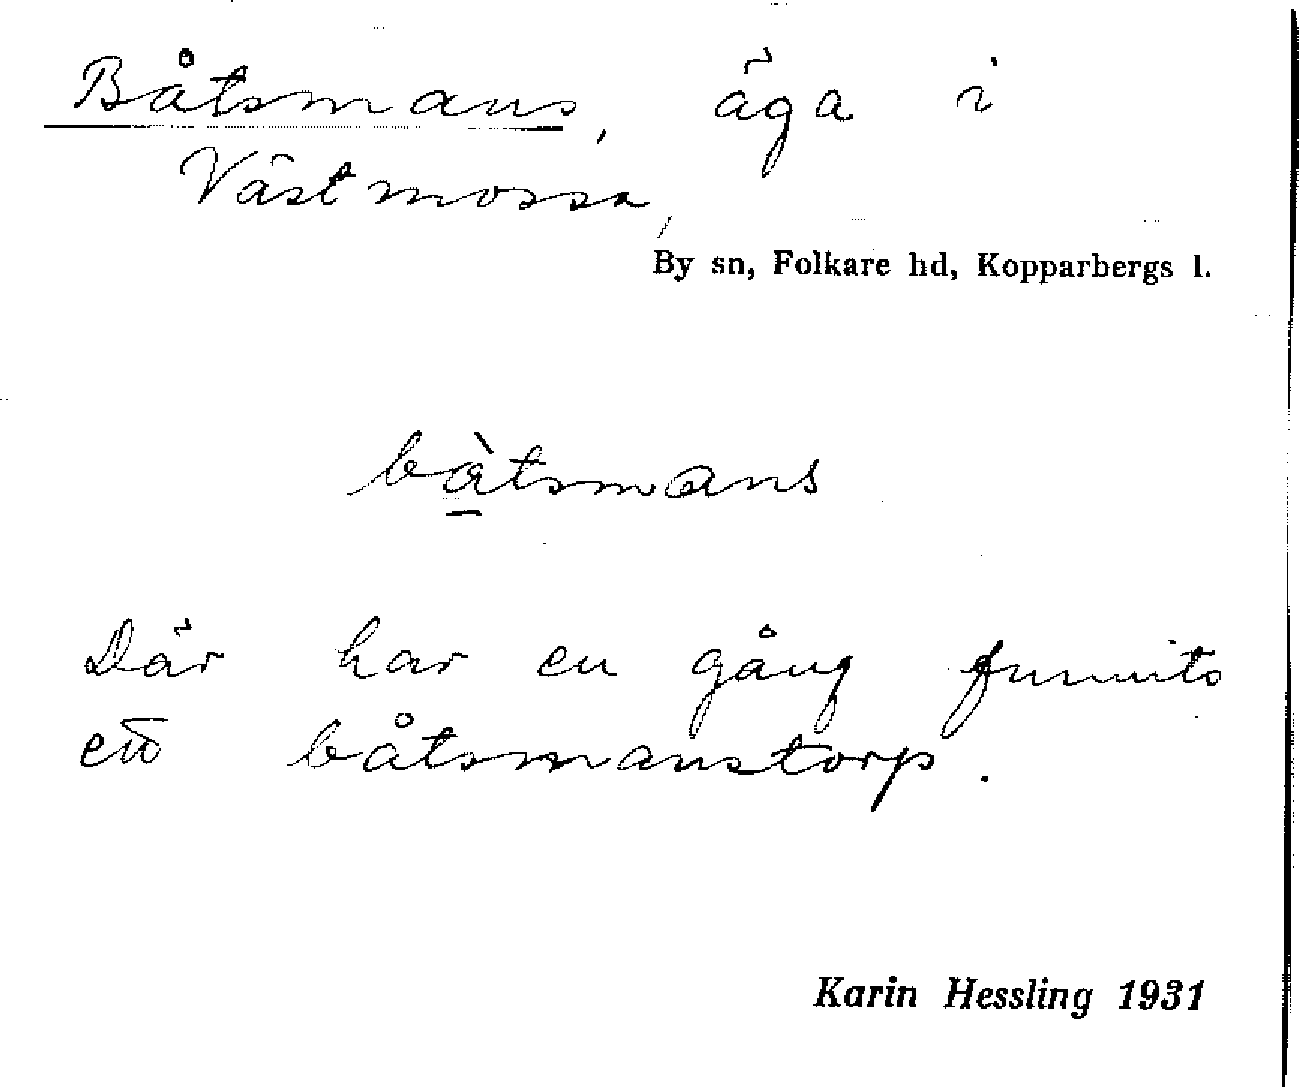 Båtsmans, äga i
Västmossa,
By sn, Folkare hd, Kopparbergs l.
bàtsmans
Där har en gång funnits
ett båtsmanstorp.
Karin Hessling 1931